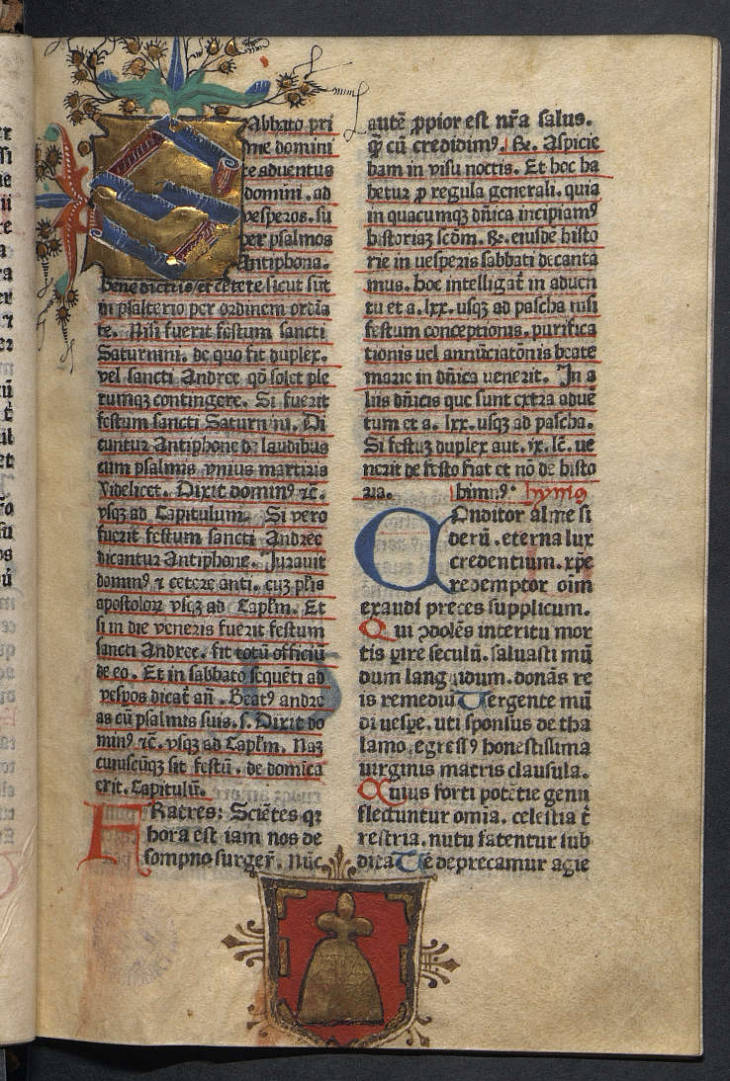 Abbato pri
me domini
ce aduentus
domini. ad
vesperos. su
per psalmos
Antiphona.
benedictus et cetere sicut sūt
in psalterio per ordinem ordīa
te. Nisi fuerit festum sancti
Saturnini. de quo fit duplex.
vel sancti Andree qđ solet ple
rumqꝫ contingere. Si fuerit
festum sancti Saturnini. Di
cuntur Antiphone de laudibus
cum psalmis vnius martiris
Videlicet. Dixit dominꝰ ⁊c̄.
vsqꝫ ad Capitulum. Si vero
fuerit festum sancti Andree
dicantur Antiphone. Jurauit
dominꝰ ⁊ cetere anti. cuꝫ pl̄is
apostoloꝝ vsqꝫ ad Capl̄m. Et
si in die veneris fuerit festum
sancti Andree. fit totū officiū
de eo. Et in sabbato sequēti ad
vesp̄os dicat̄ an̄. Beatꝰ andre
as cū psalmis suis. s. Dixit do
minꝰ ⁊c̄. vsqꝫ ad Capl̄m. Naꝫ
cuiuscūqꝫ sit festū. de domīca
erit. Capitulū.
FRatres: Sciētes qꝛ
hora est iam nos de
sompno surger̄. Nūc
autē ꝓpior est nr̄a salus.
q̄ꝫ cū credidimꝰ. ℟. Aspicie
bam in visu noctis. Et hoc ha
betur ꝓ regula generali. quia
in quacumqꝫ dn̄ica incipiamꝰ
historiaꝫ scđm. ℟. eiusdē histo
rie in vesperis sabbati decanta
mus. hoc intelligat̄ in aduen
tu et a. lxx. usqꝫ ad pascha nisi
festum conceptionis. purifica
tionis uel annūciatōnis beate
marie in dn̄ica uenerit. In a
liis dn̄icis que sunt extra adue
tum et a. lxx. usqꝫ ad pascha.
Si festuꝫ duplex aut. ix. lc̄. ue
nerit de festo fiat et nō de histo
ria. himnꝰ. hymꝰ
COnditor alme si
derū. eterna lux
credentium. xp̄e
redemptor oīm
exaudi preces supplicum.
Qui ꝯdolēs interitu mor
tis ꝑire seculū. saluasti mū
dum languidum. donās re
is remediū Uergente mū
di uesꝑe. uti sponsus de tha
lamo. egressꝰ honestissima
uirginis matris clausula.
Cuius forti potētie genu
flectuntur omīa. celestia t̄
restria. nutu fatentur sub
dita Te deprecamur agie